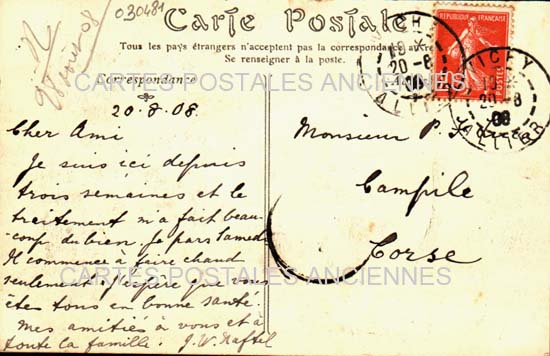 030481
28 Août 08
Carte Postale
Tous les pays étrangers n'acceptent pas la correspondance au recto
Se renseigner à la poste.
Correspondance
REPUBLIQUE FRANÇAISE
VICHY
20-8
08
ALLIER
VICHY
20-8
08
ALLIER
20-8-08.
Cher Ami
Je suis ici depuis
trois semaines et le
traitement m'a fait beau-
coup du bien. Je pars Samedi
Il commence à faire chaud
seulement. J'espère que vous
êtes tous en bonne santé.
Mes amitiés à vous et à
toute la famille. J. W. Naftel
Monsieur P.
Campile
Corse
CARTES POSTALES ANCIENNES
CARTES POSTALES ANCIENNES